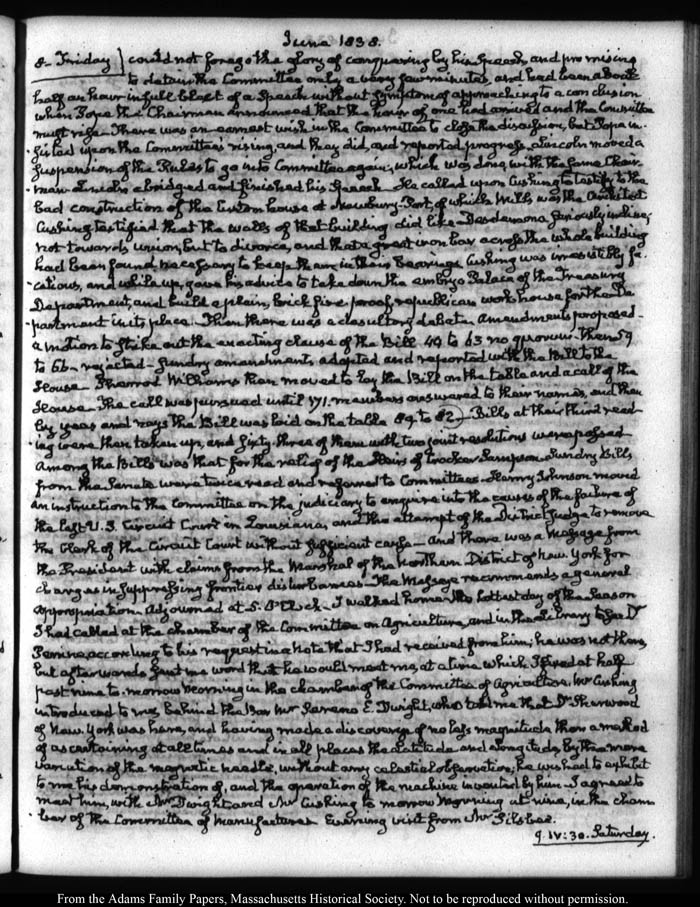 June 1838.
8. Friday} could not forego the glory of conquering by his Speech, and promising
to detain the Committee only a very few minutes, and had been about
half an hour in full blast of a Speech without symptom of approaching to a conclusion
when Pope the Chairman announced that the hour of one had arrived and the Committee
must rise. There was an earnest wish in the Committee to close the discussion, but Pope in-
sisted upon the Committee's rising, and they did, and reported progress. Lincoln moved a
suspension of the Rules to go into Committee again, which was done, with the same Chair-
man. Lincoln abridged and finished his Speech. He called upon Cushing to testify to the
bad construction of the Custom house at Newbury-Port, of which Mills was the Architect
Cushing testified that the walls of that building did like Desdemona seriously incline,
not towards union, but to divorce, and that a great iron bar across the whole building
had been found necessary to keep them in their bearings. Cushing was irresistibly fa-
cetious, and while up, gave his advice to take down the embryo Palace of the Treasury
Department, and build a plain, brick fire proof, republican work house for the De-
partment in its place. Then there was a desultory debate. Amendments proposed.
a motion to strike out the enacting clause of the Bill 49 to 63 no quorum. Then 59
to 66. rejected. Sundry amendments adopted and reported with the Bill to the
House. Sherrod Williams then moved to lay the Bill on the table and a call of the
House. The call was pursued until 171. members answered to their names, and then
by yeas and nays the Bill was laid on the table 89 to 82. Bills at their third read-
ing were then taken up, and sixty-three of them with two joint resolutions were passed
Among the Bills was that for the relief of the Heirs of Crocker Sampson. Sundry Bills
from the Senate were twice read and referred to Committees. Henry Johnson moved
an instruction to the Committee on the judiciary to enquire into the causes of the failure of
the last U.S. Circuit Court in Louisiana, and the attempt of the District Judge to remove
the Clerk of the Circuit Court without sufficient cause. And there was a Message from
the President with claims from the Marshal of the Northern District of New-York for
charges in suppressing frontier disturbances. The Message recommends a general
appropriation. Adjourned at 5. O'Clock. I walked home. The hottest day of the Season
I had called at the chamber of the Committee on Agriculture, and in the Library to see Dr
Perrine according to his request in a Note that I had received from him; he was not there,
but afterwards sent me word that he would meet me, at a time which I fixed at half
past nine to-morrow morning in the chamber of the Committee of Agriculture. Mr Cushing
introduced to me, behind the Bar Mr Sereno E. Dwight, who told me that Dr Sherwood
of New York was here, and having made a discovery of no less magnitude than a method
of ascertaining at all times and in all places the latitude and longitude, by the mere
variation of the magnetic needle, without any celestial observation; he wished to exhibit
to me his demonstration of, and the operation of the machine invented by him. I agreed to
meet him, with Mr Dwight and Mr Cushing to morrow morning at nine, in the cham-
ber of the Committee of Manufactures. Evening visit from Mr Silsbee.
9. IV:30. Saturday.
From the Adams Family Papers, Massachusetts Historical Society. Not to be reproduced without permission.